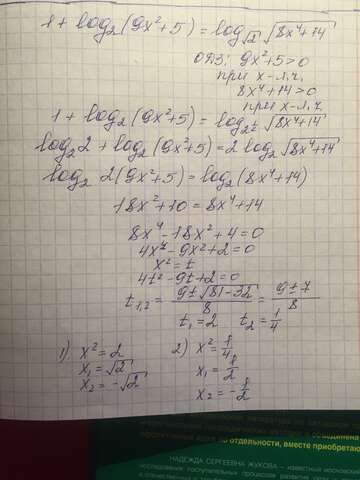 1 + log₂(9x²+5) = log_√2 √(8x⁴+14)
ОДЗ: 9x²+5>0
при x-л.ч.
8x⁴+14>0
при x-л.ч
1 + log₂(9x²+5) = log_2^½ √(8x⁴+14)
log₂2 + log₂(9x²+5) = 2 log₂ √(8x⁴+14)
log₂ 2(9x²+5) = log₂(8x⁴+14)
18x²+10 = 8x⁴+14
8x⁴-18x²+4=0
4x⁴-9x²+2=0
x²=t
4t²-9t+2=0
t₁,₂ = (9±√(81-32))/8 = (9±7)/8
t₁=2 t₂=1/4
1) x²=2
x₁=√2
x₂=-√2
2) x²=1/4
x₁=1/2
x₂=-1/2
НАДЕЖДА СЕРГЕЕВНА ЖУКОВА – известный московский